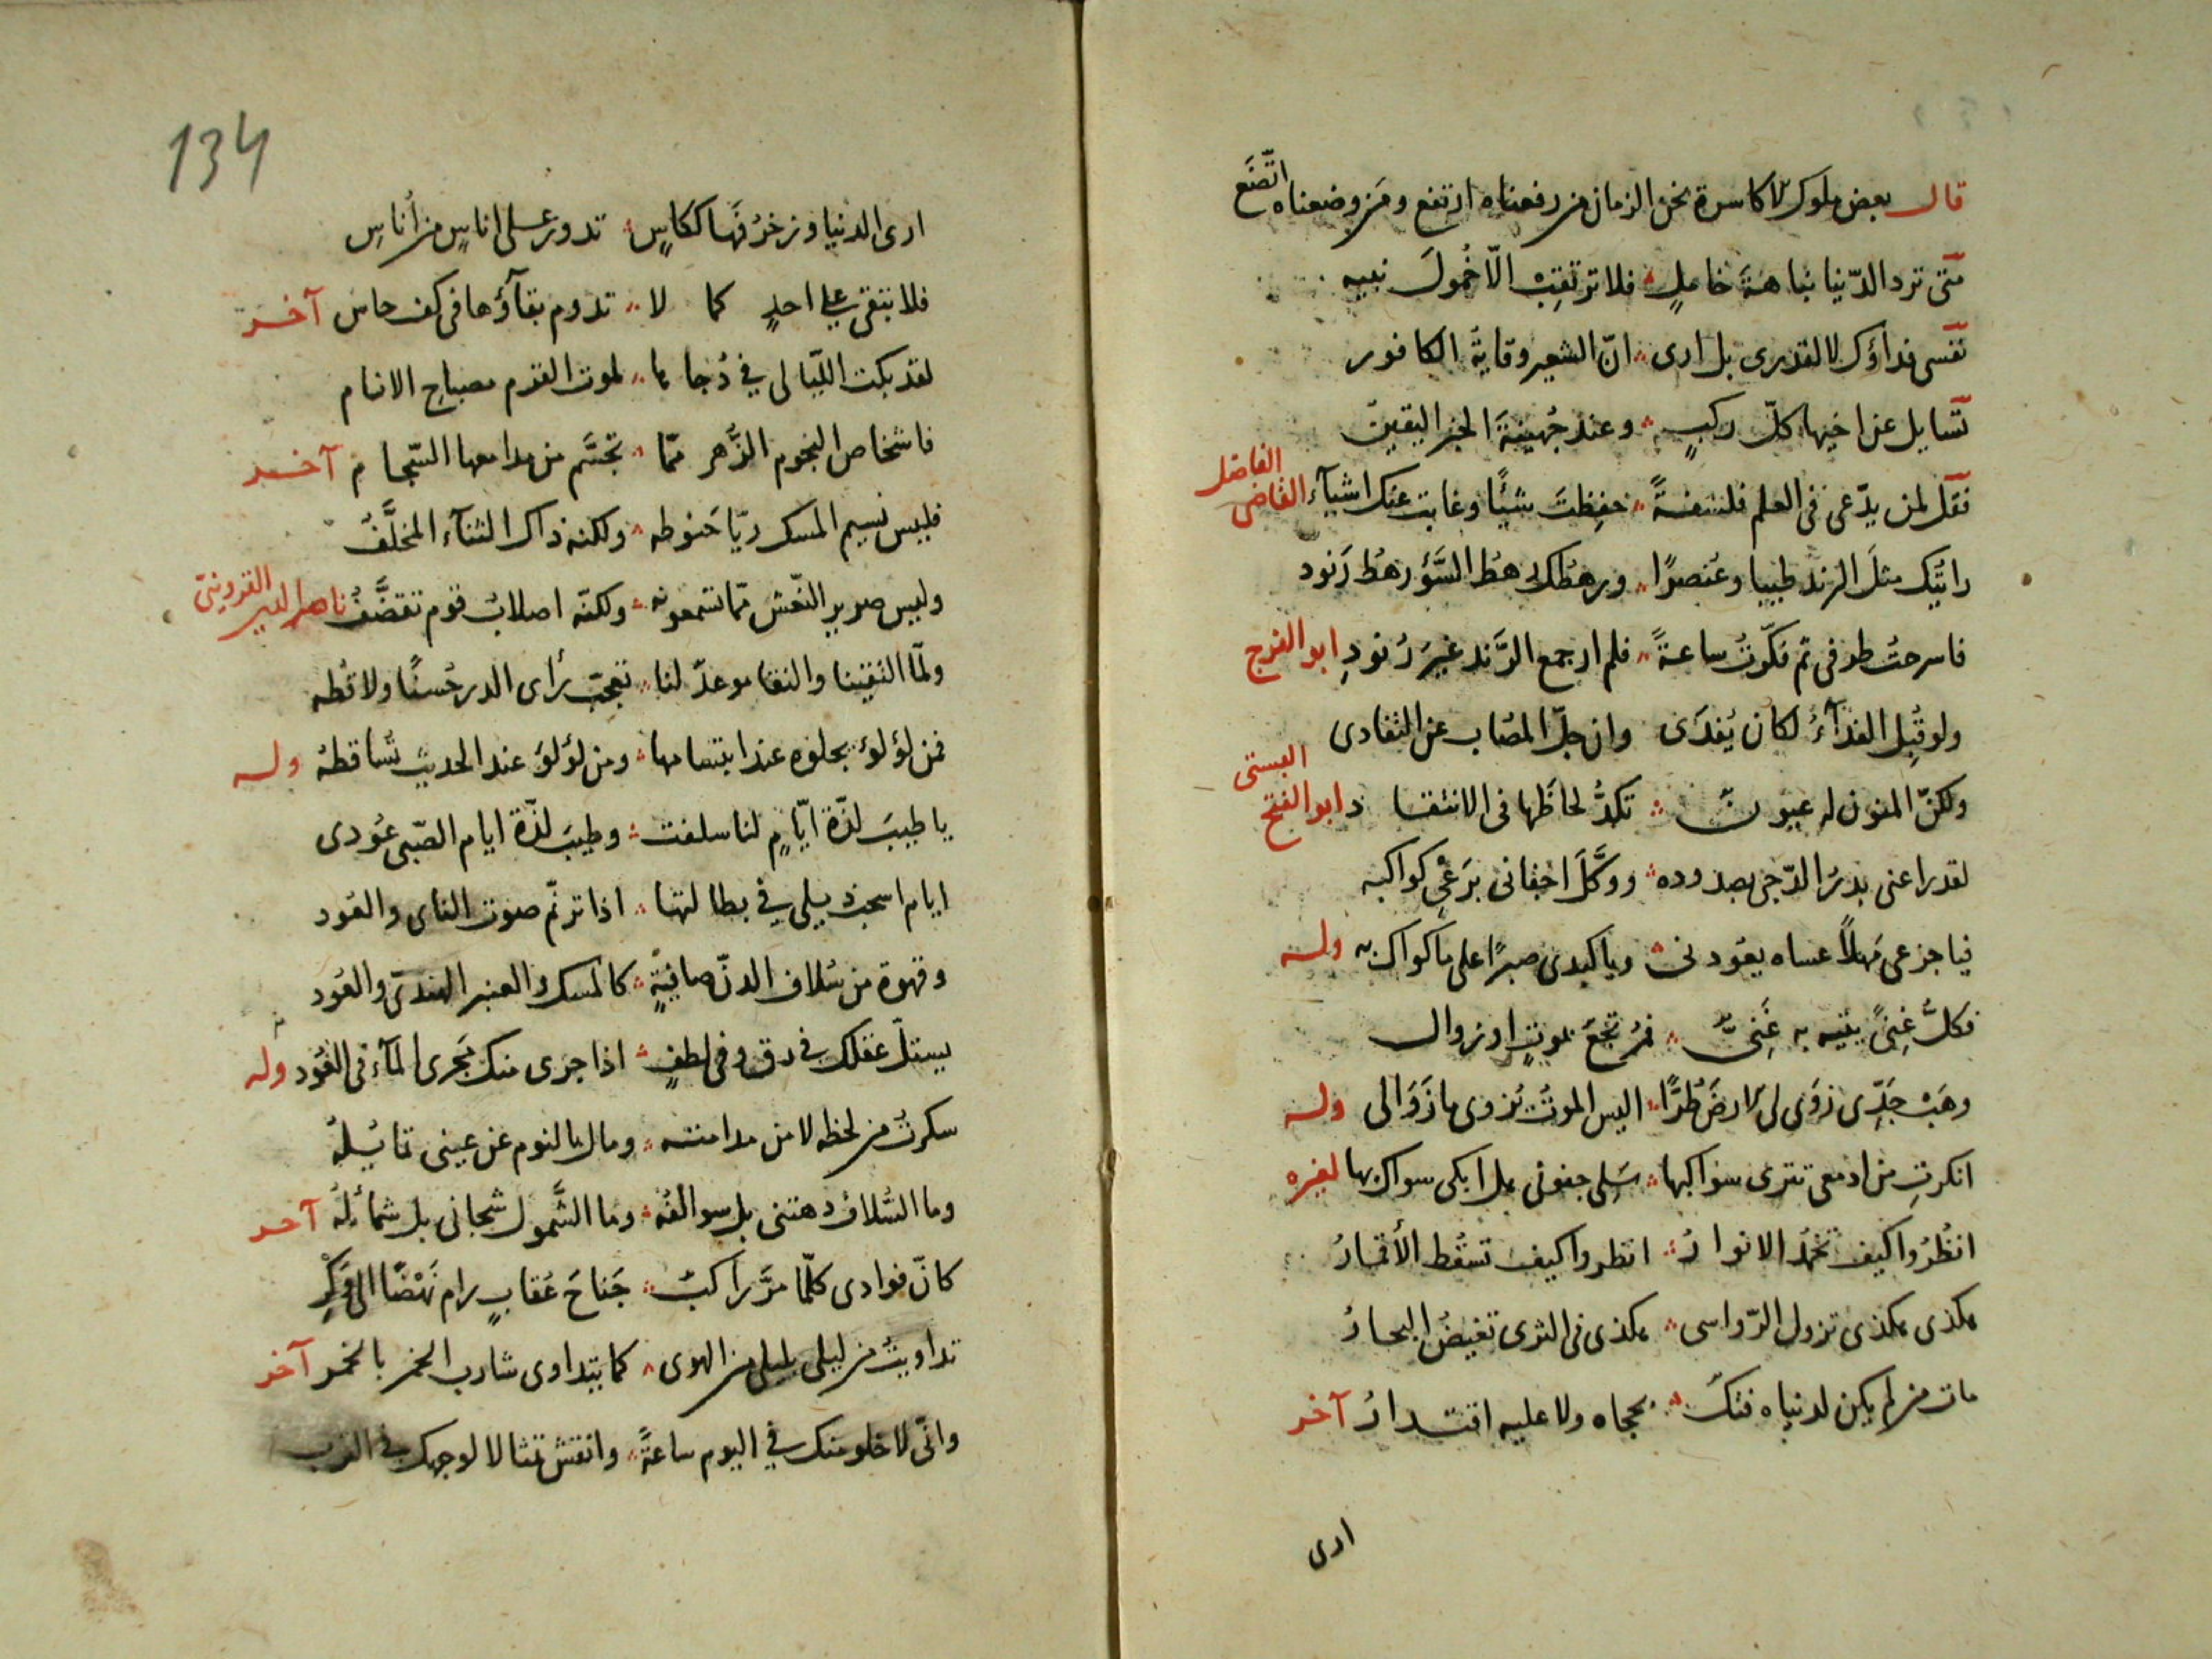 قال بعض ملوك الاكاسرة نحن الزمان من رفعناه ارتفع ومن وضعناه اتّضَع
متى ترد الدّنيا نباهة خاملٍ فلا ترتقِبْ الّا خُمولَ نبيه
نفسى فداؤك لا لقدرى بل ارى انّ الشعير وقاية الكافور
تسايل عن اخيها كلّ ركبٍ وعند جُهينةَ الخبر اليقين
فقل لمن يدّعى فى العلم فلسفةً حفِظتَ شيئًا وغابت عنك اشيآء القاضى الفاضل
رائتك مثلَ الزند طيبا وعُنصرًا ورهطك رهطُ السَّؤ رهطُ زَنود
فاسرحتُ طرفى ثم فكّرتُ ساعةً فلم ار جمع الزَّند غيرَ زُنودِ ابو الفرج
ولو قُبِل الفدآءُ لكان يُفدَى وان جلّ المُصاب عن التفادى
ولكنّ المنون له عيونٌ تكدُّ لحاظَها فى الانتقاد ابو الفتح البستى
لقد راعنى بدرُ الدّجى بصدوده ووكَّلَ اجفانى برَعْىِ كواكبه
فيا جزعى مَهلاً عساه يعودنى ويا كبدى صبرًا على ما كواك به وله
فكلُّ غِنىً يتيه به غَنِىٌّ فمُرتجَع بموتٍ او زوال
وهَبْ جَدِّى زَوَى لى الارضَ طُرًّا اليس الموتُ يزوى ما زَوَا لى وله
انكرتِ من ادمعى تترى سواكبها سَلِى جفونى هل ابكى سواك بها لغيره
انظُرُوا كيف تخمدُ الانوارُ انظروا كيف تسقُط الأقمارُ
هكذى هكذى تزول الرّواسى هكذى فى الثرى تغيضُ البحارُ
مات من لم يكن لدنياه فتكٌ بحجاه ولا عليه اقتدارُ آخر
ارى
134
ارى الدنيا وزخرُفَها ككاسٍ تدور على اناسٍ من أناسِ
فلا تبقى على احدٍ كما لا تدوم بقآؤها فى كف حاس آخر
لقد بكت اللّيالى فى دُجاها لموت القرم مصباحِ الانام
فاشخاص النجوم الزُّهر ممّا تجسَّم من مدامعها السّجام آخر
فليس نسيم المسك ريّا حَنوطه ولكنه ذاك الثنآء المخلَّفُ
وليس صرير النّعش ممّا تسمعونه ولكنّه اصلابُ قوم تقصَّفُ ناصر الدين القزوينىّ
ولمّا التقينا والنقا موعدٌ لنا تعجّب رأى الدر حُسنًا ولاقطه
فمن لؤلؤ يجلوه عند ابتسامها ومن لؤلؤ عند الحديث تُساقطهُ وله
يا طيبَ لذّة ايّامٍ لنا سلفت وطيبَ لذّة ايام الصّبى عُودى
ايام اسحب ذيلى فى بطالتها اذا ترنّم صوت الناى والعُود
وقهوة من سُلاف الدنّ صافيةٍ كالمسك والعنبر الهندىّ والعُود
يستلّ عقلك فى رق وفى لطفٍ اذا جرى منك مَجرى المآء فى العُود وله
سكرتُ من لحظه لا من مدامته ومال بالنوم عن عينى تمايُلهُ
وما السُّلاف دهتنى بل سوالفُه وما الشَّمول شجانى بل شمائلُهُ آخر
كانّ فوادى كلّما مرَّ راكبٌ جَناحَ عُقابٍ رام نَهْضًا الى وَكْرِ
تداويتُ من ليلى بليلى من الهوى كما يتداوى شارب الخمر بالخمر آخر
وانّى لاخلو منك فى اليوم ساعةً وانقش تمثالا لوجهك فى الترب